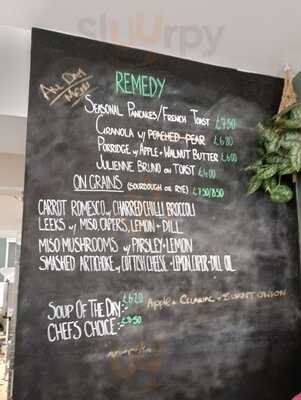 Sluurpy
ALL DAY
MENU
REMEDY
SEASONAL PANCAKES/FRENCH TOAST £7.50
GRANOLA W/ POACHED PEAR £6.80
PORRIDGE W/ APPLE + WALNUT BUTTER £6.00
JULIENNE BRUNO ON TOAST £6.00
ON GRAINS (SOURDOUGH OR RYE) £7.50/8.50
CARROT ROMESCO W/ CHARRED CHILLI BROCCOLI
LEEKS W/ MISO, CAPERS, LEMON + DILL
MISO MUSHROOMS W/ PARSLEY + LEMON
SMASHED ARTICHOKE W/ COTTISH CHEESE + LEMON, CAPER + DILL OIL
SOUP OF THE DAY: £6.20 APPLE + CELERIAC + BURNT ONION
CHEFS CHOICE: £7.50